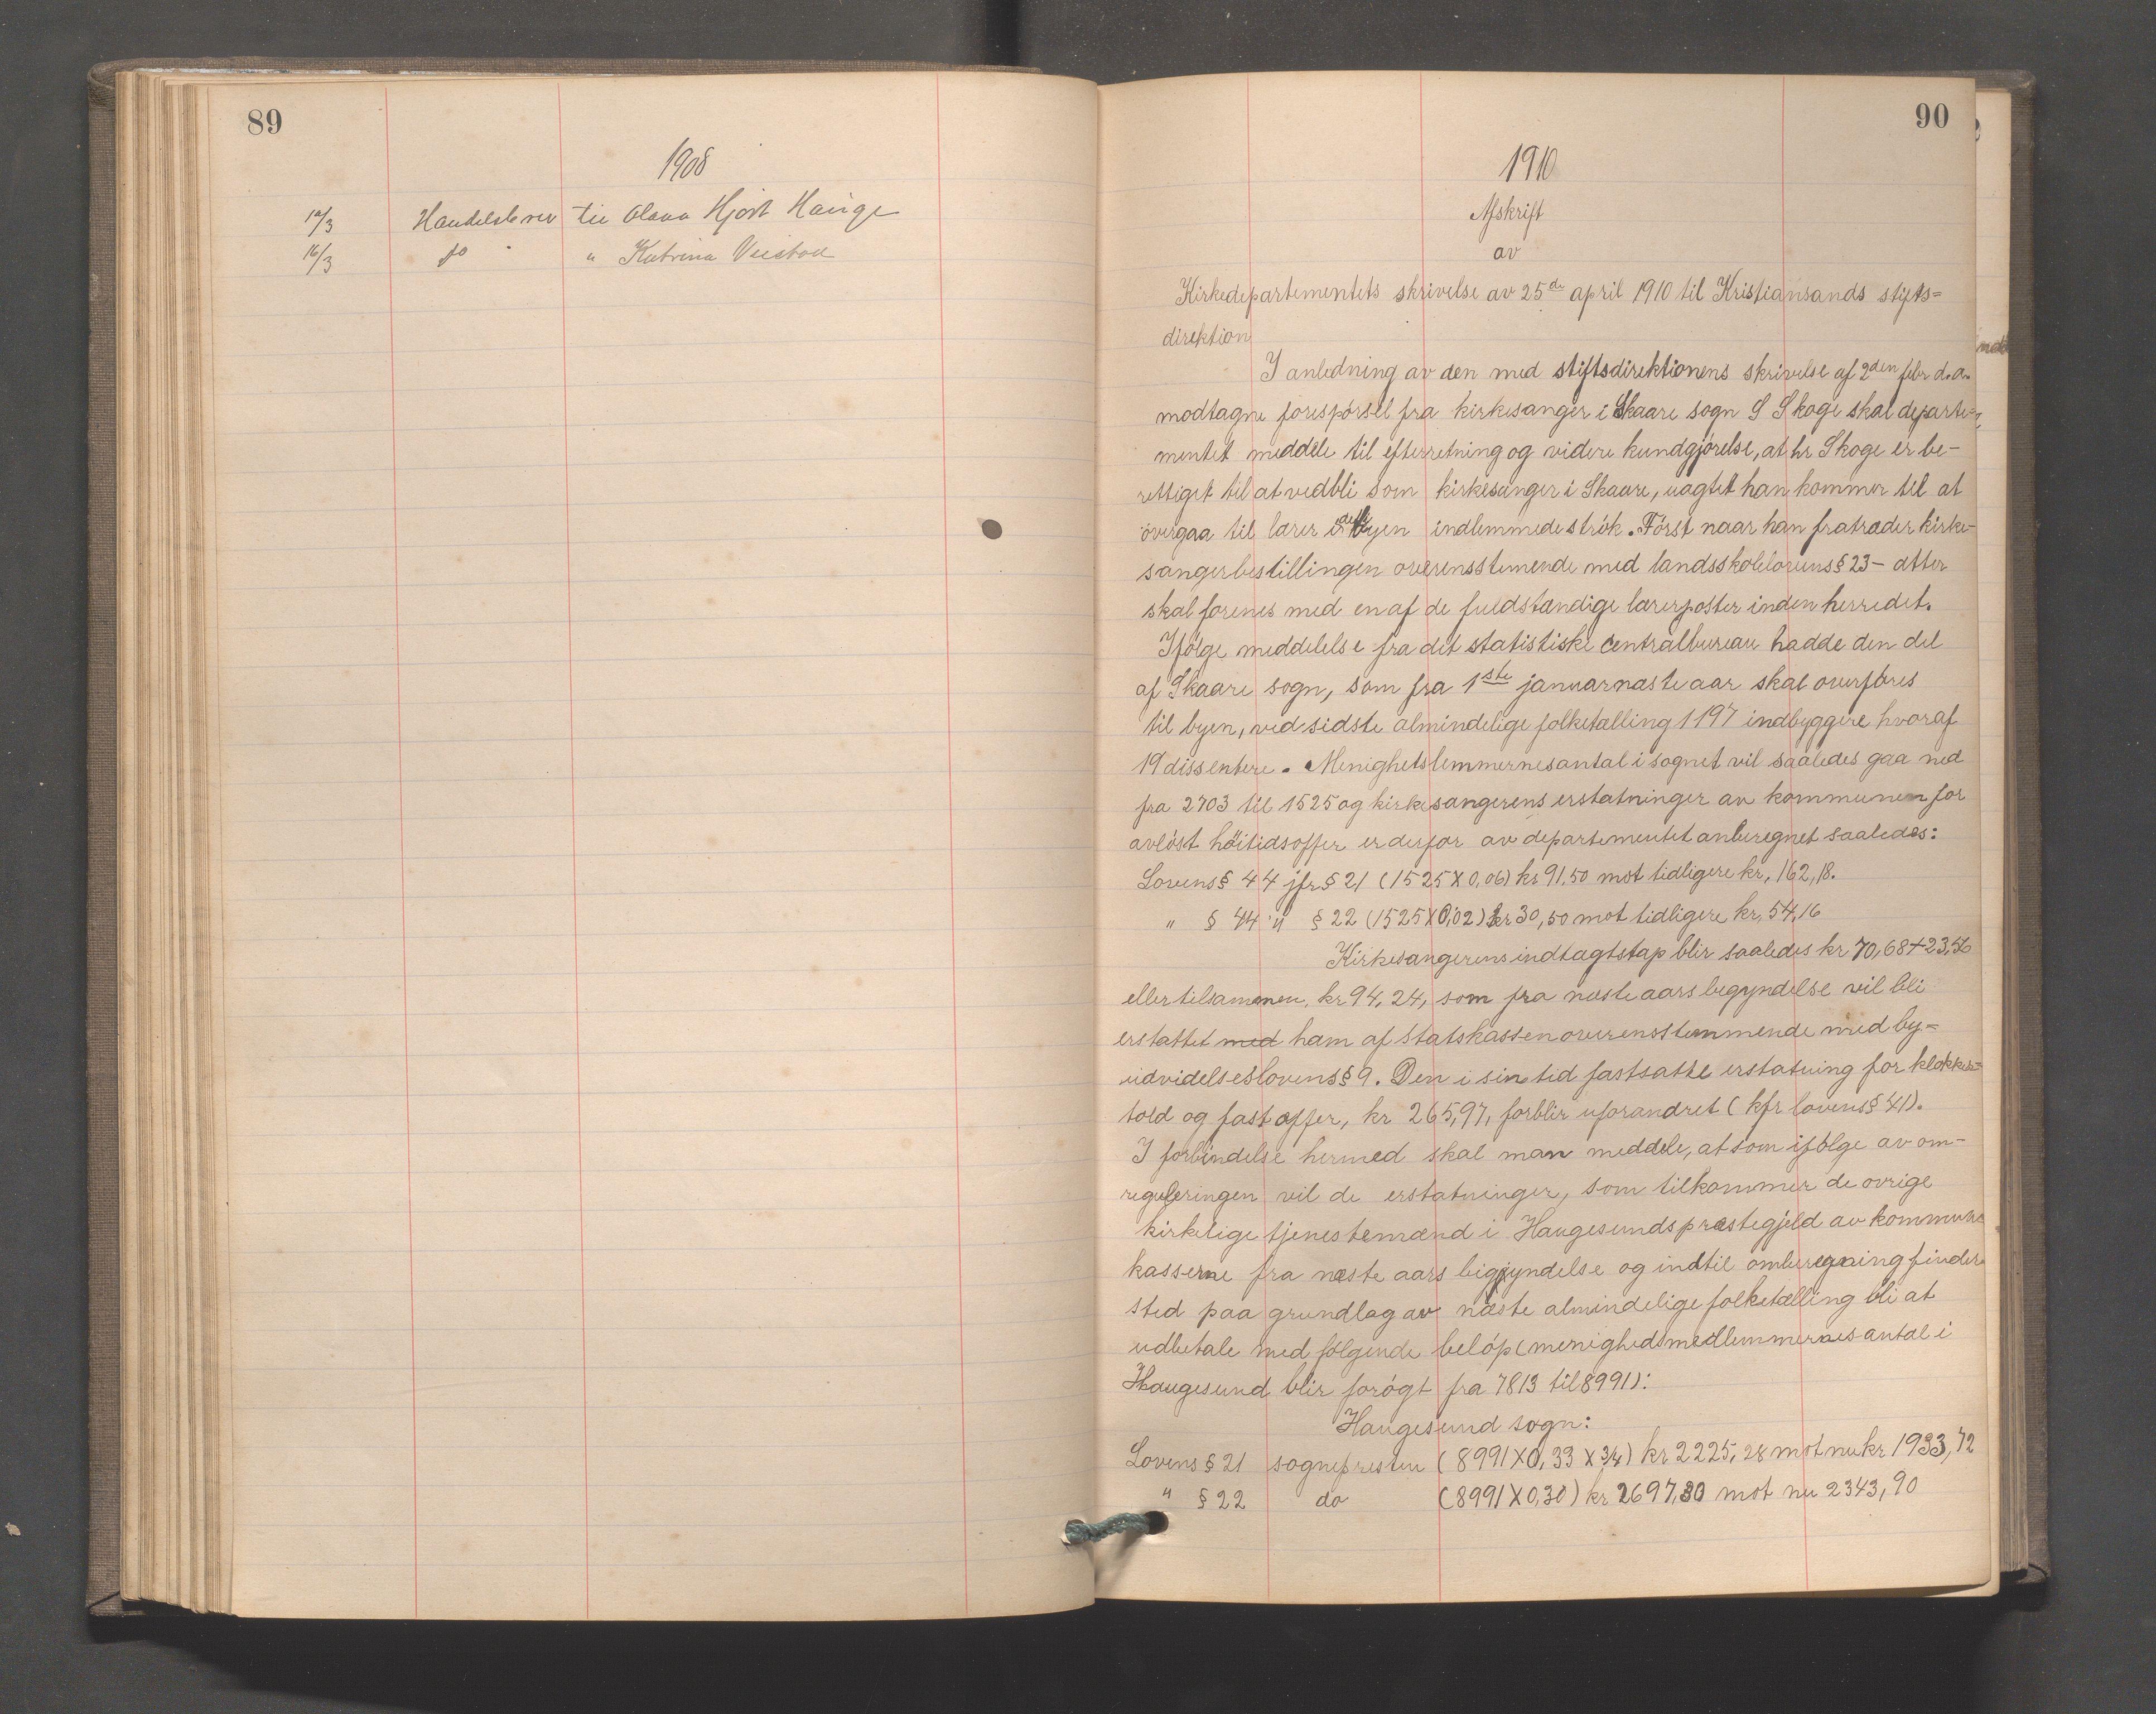 89
1908
12/3 Handelsbrev til Olava Hjort Hauge
16/3 do " Katrina Veistad
90
1910
Afskrift
av
Kirkedepartementets skrivelse av 25de april 1910 til Kristiansands stifts=
direktion
I anledning av den med stiftsdirektionens skrivelse af 2den febr d.a.
modtagne forespørsel fra kirkesanger i Skaare sogn S Skoge skal departe-
mentet meddele til efterretning og videre kundgjørelse, at hr Skoge er be-
rettiget til at vedbli som kirkesanger i Skaare, uagtet han kommer til at
overgaa til lærer i de byen indlemmede strøk. Først naar han fratræder kirke-
sangerbestillingen overensstemende med landsskolelovens § 23 – atter
skal forenes med en af de fuldstændige lærerposter inden herredet.
Ifølge meddelelse fra det statistiske centralbureau hadde den del
af Skaare sogn, som fra 1ste januar næste aar skal overføres
til byen, ved sidste almindelige folketælling 1197 indbyggere hvoraf
19 dissentere. Menighetslemmernes antal i sognet vil saaledes gaa ned
fra 2703 til 1525 og kirkesangerens erstatninger av kommunen for
avløst høitidsoffer er derfor av departementet anberegnet saaledes:
Lovens § 44 jfr § 21 (1525 X 0,06) kr 91,50 mot tidligere kr, 162,18.
" § 44 " § 22 (1525 X 0,02) kr 30,50 mot tidligere kr, 54,16
Kirkesangerens indtægtstap blir saaledes kr 70,68 + 23,56
eller tilsammen, kr 94,24, som fra næste aars begyndelse vil bli
erstattet med ham af Statskassen overensstemmende med by=
udvidelseslovens § 9. Den i sin tid fastsatte erstatning for klokker=
told og fast offer, kr 265,97, forblir uforandret (kfr lovens § 41).
I forbindelse hermed skal man meddele, at som ifølge av om-
reguleringen vil de erstatninger, som tilkommer de øvrige
kirkelige tjenestemænd i Haugesunds præstegjeld av kommune
kasserne fra næste aars begyndelse og indtil omberegning finder
sted paa grundlag av næste almindelige folketælling bli at
udbetale med følgende beløp (menighedsmedlemmernes antal i
Haugesund blir forøgt fra 7813 til 8991):
Haugesund sogn:
Lovens § 21 sognepresten (8991 X 0,33 X 3/4) kr 2225,28 mot nu kr 1933,72
" § 22 do (8991 X 0,30) kr 2697,30 mot nu 2343,90